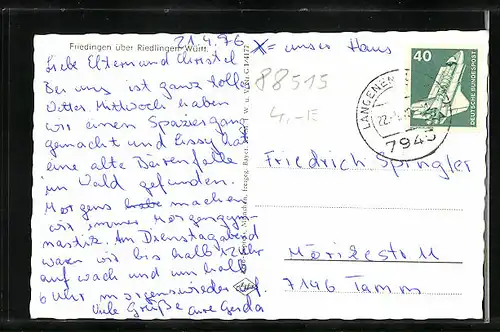 Friedingen über Riedlingen Württ.
21.4.76
X = unser Haus
Liebe Eltern und Christel
Bei uns ist ganz tolles
Wetter. Mittwoch haben
wir einen Spaziergang
gemacht und Sissy hat
eine alte Bärenfalle
im Wald gefunden.
Morgens habe machen
wir immer Morgengym-
nastik. Am Dienstagabend
waren wir bis halb 12 Uhr
auf wach und um halb
6 Uhr morgens wieder auf.
Viele Grüße eure Gerda
88515
4,-E
40
DEUTSCHE BUNDESPOST
LANGENEN
22.
7945
Friedrich Spingler
Mörikestr 11
7146 Tamm